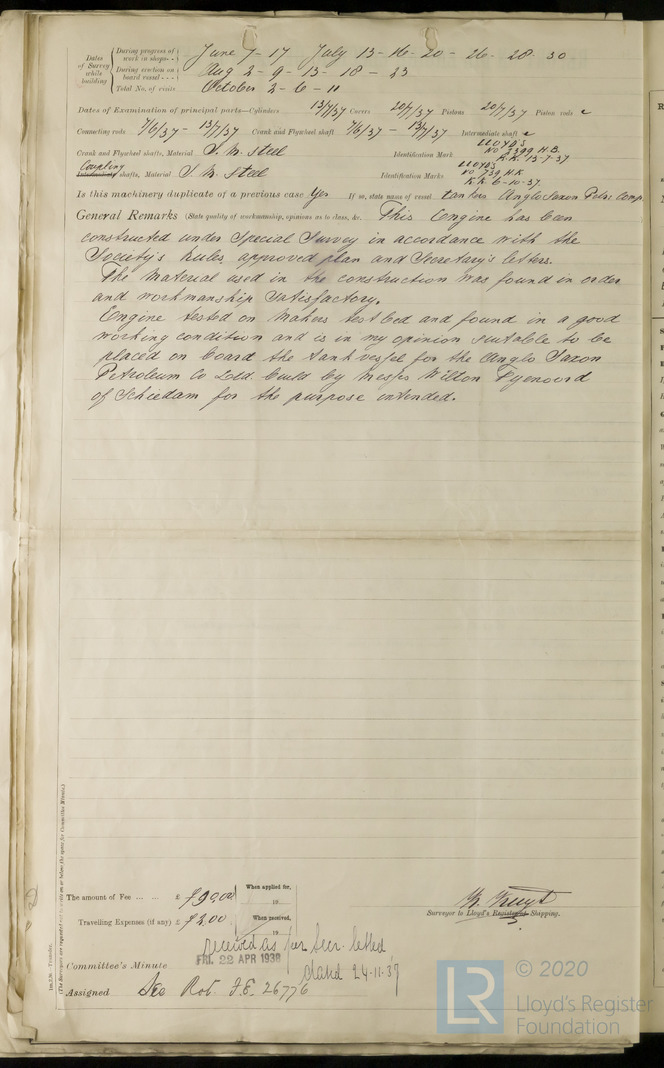 Dates of Survey while building
During progress of work in shops - - June 7 - 17 July 13 - 16 - 20 - 26 - 28 - 30
During erection on board vessel - - - Aug 2 - 9 - 13 - 18 - 23
Total No. of visits October 2 - 6 - 11
Dates of Examination of principal parts—Cylinders 13/7/37 Covers 20/7/37 Pistons 20/7/37 Piston rods
Connecting rods 7/6/37 - 13/7/37 Crank and Flywheel shaft 7/6/37 - 13/7/37 Intermediate shaft
Crank and Flywheel shafts, Material S. M. Steel Identification Mark LLOYD'S No 7399 H.B. K.K. 13-7-37
Coupling Intermediate shafts, Material S. M. Steel Identification Marks LLOYD'S No 739 H.K K.K 6-10-37
Is this machinery duplicate of a previous case Yes If so, state name of vessel tankers Anglo Saxon Petr. Comp.
General Remarks (State quality of workmanship, opinions as to class, &c. This Engine has been
constructed under Special Survey in accordance with the
Society's Rules approved plan and Secretary's letters.
The Material used in the construction was found in order
and workmanship Satisfactory.
Engine tested on Makers test bed and found in a good
working condition and is in my opinion suitable to be
placed on board the tank vessel for the Anglo Saxon
Petroleum Co Ltd. build by Messrs Wilton Fyenoord
of Schiedam for the purpose intended.
Im.2.36—Transfer.
(The Surveyors are requested not to write on or below the space for Committee Minute.)
The amount of Fee ... ... £ 90.00
When applied for,
19
Travelling Expenses (if any) £ 2.00
When received,
19
K. Kruyt
Surveyor to Lloyd's Register of Shipping.
received as per Secr. letter
dated 24-11-37
Committee's Minute FRI. 22 APR 1938
Assigned See Rot. F.E. 26776
© 2020
LR
Lloyd's Register
Foundation